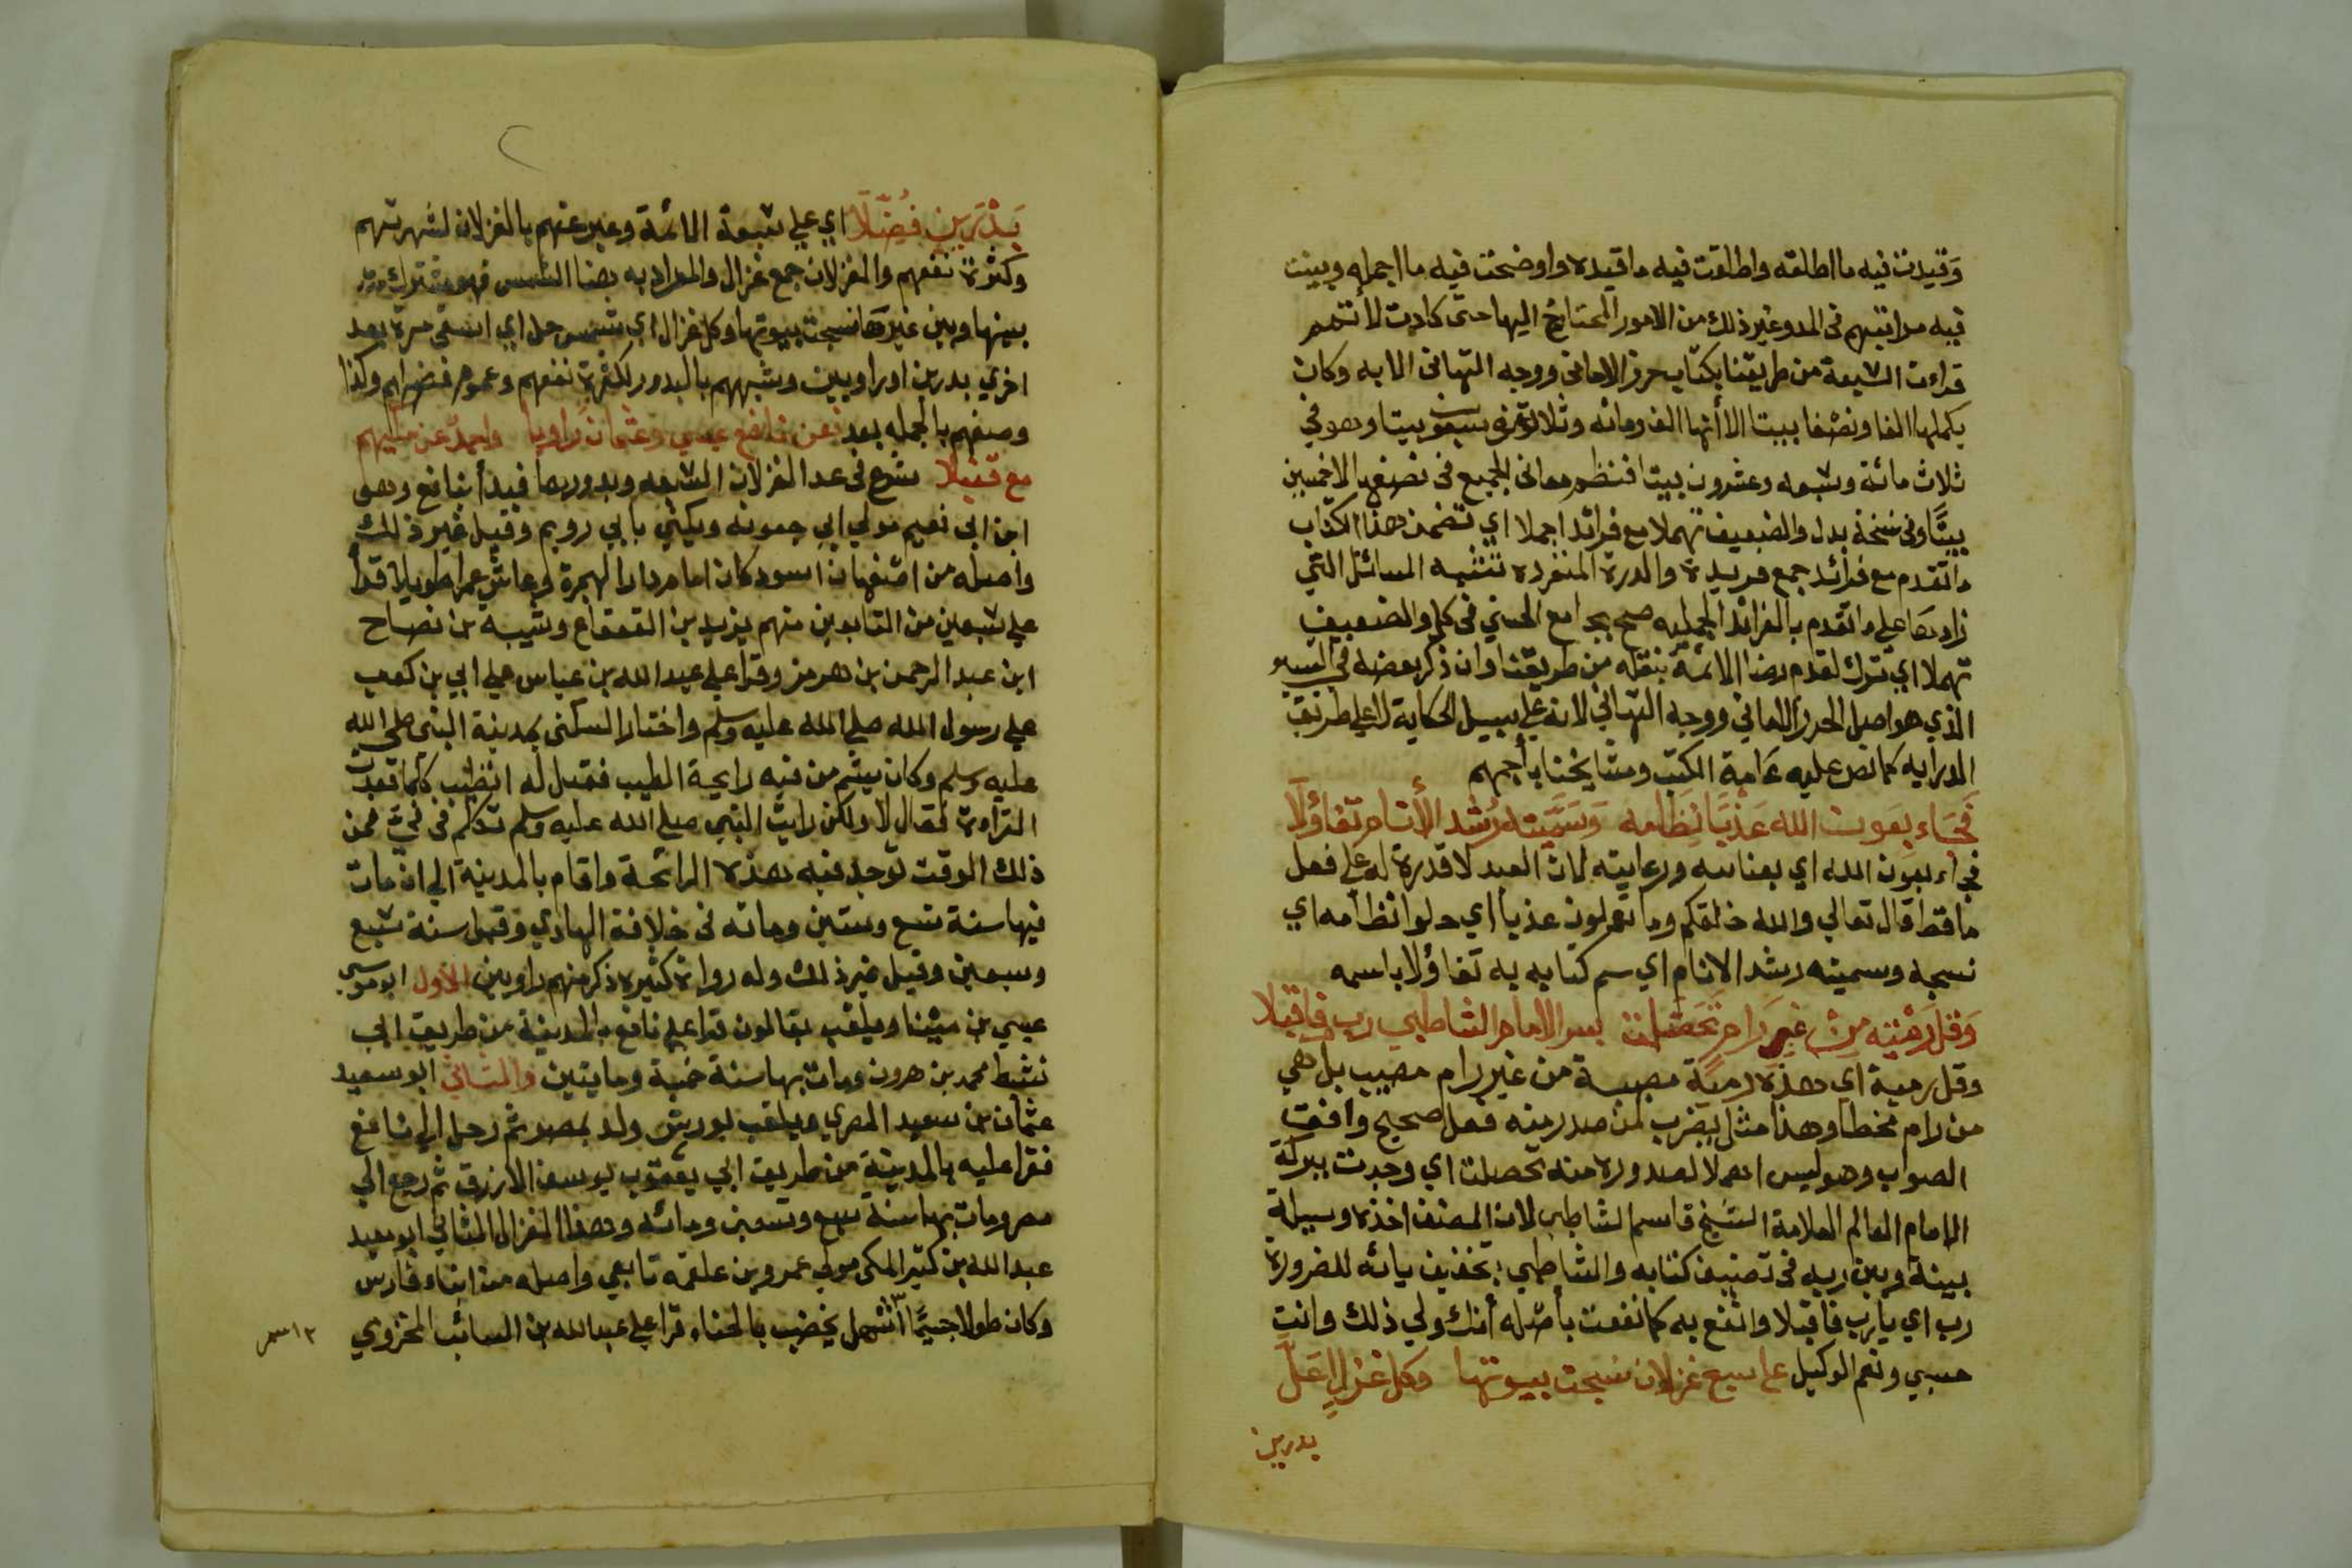 وقيدت فيه ما اطلقه واطلقت فيه ما قيده واوضحت فيه ما اجمله وبينت
فيه مراتبهم فى المد وغير ذلك من الامور المحتاج اليها حتى كادت لا تتم
قراءت السبعة من طريقنا بكتاب حرز الامانى ووجه التهانى الا به وكان
بكملها الفا ونصفا بيتا الا أنها الف ومائه وثلاثة وسبعون بيتا وهو فى
ثلاث مائة وسبعه وعشرون بيتا فنظم معانى الجميع فى نصفها الا خمسين
بيتا وفى نسخة بدل والضعيف تهملا مع فرائد اجملا اي تضمن هذا الكتاب
ما تقدم مع فرائد جمع فريدة والدرة المنفرده تشبه المسائل التي
زادها على ما تقدم بالفرائد الجمليه صح بجامع الحسن فى كل والضعيف
تهملا اي ترك لعدم رضا الائمة بنقله من طريقنا وان ذكر بعضه في التيسير
الذي هو اصل الحرز الامانى ووجه التهانى لانه على سبيل الحكاية لا على طريق
الدرايه كما نص عليه عامة الكتب ومشايخنا بأجمهم
فَجَاء بعَون الله عَذْبًا نِظامه وَسَمَّيته رُشْد الأنام تفاؤلَا
فجاء بعون الله اي بعنايته ورعايته لان العبد لا قدرة له على فعل
ما قط قال تعالى والله خلقكم وما تعملون عذبا اي حلوا نظامه اي
نسجه وسميته رشد الانام اي سم كتابه به تفاؤلا باسمه
وَقل رَمْيَة مِنْ غير رام تَحَصَّلت بسر الامام الشاطبي رب فاقبلا
وقل رمية اي هذه رمية مصيبة من غير رام مصيب بل هي
من رام مخطا وهذا مثل يضرب لمن صدر منه فعل صحيح وافق
الصواب وهو ليس اهلا لصدوره منه تحصلت اي وجدت ببركة
الامام العالم العلامة الشيخ قاسم الشاطبي لان المصنف اخذه وسيلة
بينه وبين ربه فى تصنيف كتابه والشاطبي بتخفيف يائه للضرورة
رب اي يا رب فاقبلا وانفع به كما نفعت بأصله أنك ولي ذلك وانت
حسبي ونعم الوكيل على سبع غزلان نسجت بيوتها وكل غزال حل
بدرين
بَدْرَيْنِ فُضّلَا اي على سبعة الائمة وعبر عنهم بالغزلان لشهرتهم
وكثرة نفعهم والغزلان جمع غزال والمراد به هنا الشمس فهو مشترك
بينها وبين غيرها نسجت بيوتها وكل غزال اي شمس حل اي اتى مرة بعد
اخري بدرين اى راويين وشبههم بالبدور لكثرة نفعهم وعموم وكذا
وصفهم بالجمله بعد فعن نافع عيسي وعثمان راويا واحمد عن مكيهم
مع قنبلا شرع فى عد الغزلان السبعه وبدورها فبدأ بنافع وهو
ابن ابى نعيم مولي ابى جعونه ويكنى بابي رويم وقيل غير ذلك
وأصله من اصفهان اسود كان امام دار الهجرة وعاش عمرا طويلا قرأ
على سبعين من التابعين منهم يزيد بن القعقاع وشيبه بن نصاح
ابن عبد الرحمن بن هرمز وقرا على عبد الله بن عباس على ابي بن كعب
على رسول الله صلى الله عليه وسلم واختار السكنى بمدينة النبى صلى الله
عليه وسلم وكان يشم من فيه رايحة الطيب فقيل له اتطيب كلما قعدت
القراءة فقال لا ولكن رايت النبي صلى الله عليه وسلم تكلم فى فيّ فمن
ذلك الوقت توجد فيه هذه الرائحة واقام بالمدينة الى ان مات
فيها سنة تسع وستين ومائه فى خلافة الهادي وقيل سنة سبع
وسبعين وقيل غير ذلك وله رواة كثيره ذكر منهم راويين الاول ابو موسى
عيسي بن مينا ويلقب بقالون قرا على نافع بالمدينة من طريق ابى
نشيط محمد بن هرون ومات بها سنة خمسة ومايتين والثانى ابو سعيد
عثمان بن سعيد المصري ويلقب بورش ولد بمصر ثم رحل الى نافع
فقرا عليه بالمدينة من طريق ابي يعقوب يوسف الازرق ثم رجع الى
مصر ومات بها سنة سبع وتسعين ومائه وهذا الغزال الثانى ابو معبد
عبد الله بن كثير المكى مولى عمرو بن علقمه تابعي واصله من ابناء فارس
وكان طولا جسيمًا اشهل يخضب بالحناء قرا على عبد الله بن السائب المخزومي